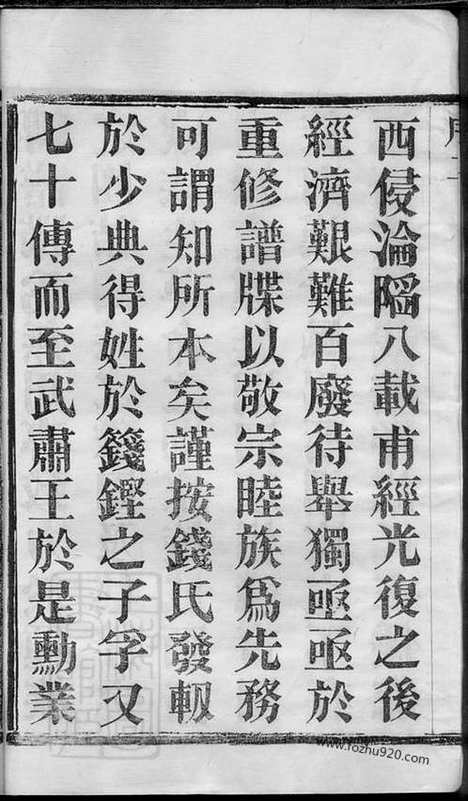 西侵淪陷八載甫經光復之後
經濟艱難百廢待舉獨亟亟於
重修譜牒以敬宗睦族爲先務
可謂知所本矣謹按錢氏發軔
於少典得姓於籛鏗之子孚又
七十傳而至武肅王於是勳業
www.fozhu920.com